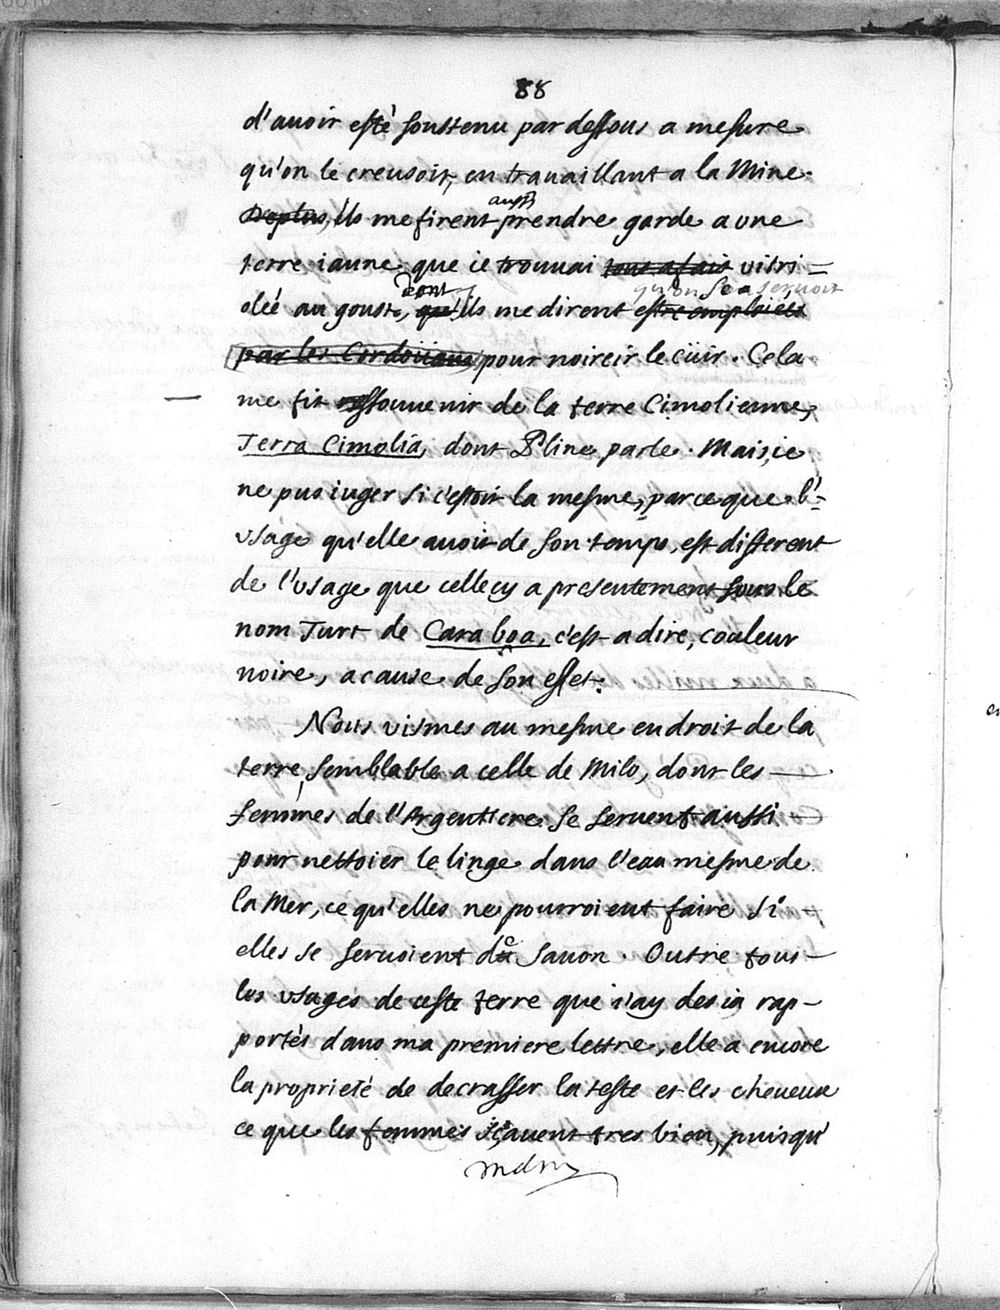 88
d'auoir esté soustenu par dessous a mesure
qu'on le creusoit, en trauaillant a la Mine.
Deplus, ils me firent aussi prendre garde a vne
terre iaune que ie trouuai tout afait vitri-
olée au goust, dont qu'ils me dirent qu'on se seruoit estre emploiée
par les Cordoüans pour noircir le cüir. Cela
me fit ressouuenir de la terre Cimolienne,
Terra Cimolia, dont Pline parle. Mais ie
ne pus iuger si c'estoit la mesme, parceque l'-
vsage qu'elle auoit de son temps, est different
de l'vsage que cellecy a presentement sous le
nom Turc de Cara boa, c'est a dire, couleur
noire, a cause de son effet.
Nous vismes au mesme endroit de la
terre semblable a celle de Milo, dont les
femmes de l'Argentiere se seruent aussi
pour nettoier le linge dans l'eau mesme de
la Mer, ce qu'elles ne pourroient faire si
elles se seruoient de sauon. Outre tous
les vsages de ceste terre que i'ay desia rap-
portés dans ma premiere lettre, elle a encore
la proprieté de decrasser la teste et les cheueux
ce que les femmes sçauent tres bien, puisqu'